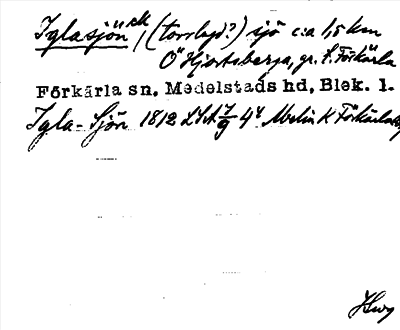 Iglasjön, (torrlagd?) sjö c:a 1,5 km
Ö Hjortsberga, gr. t. Förkärla
Förkärla sn, Medelstads hd, Blek. l.
Igla-Sjön 1812 7/9 Abelin K Förkärla